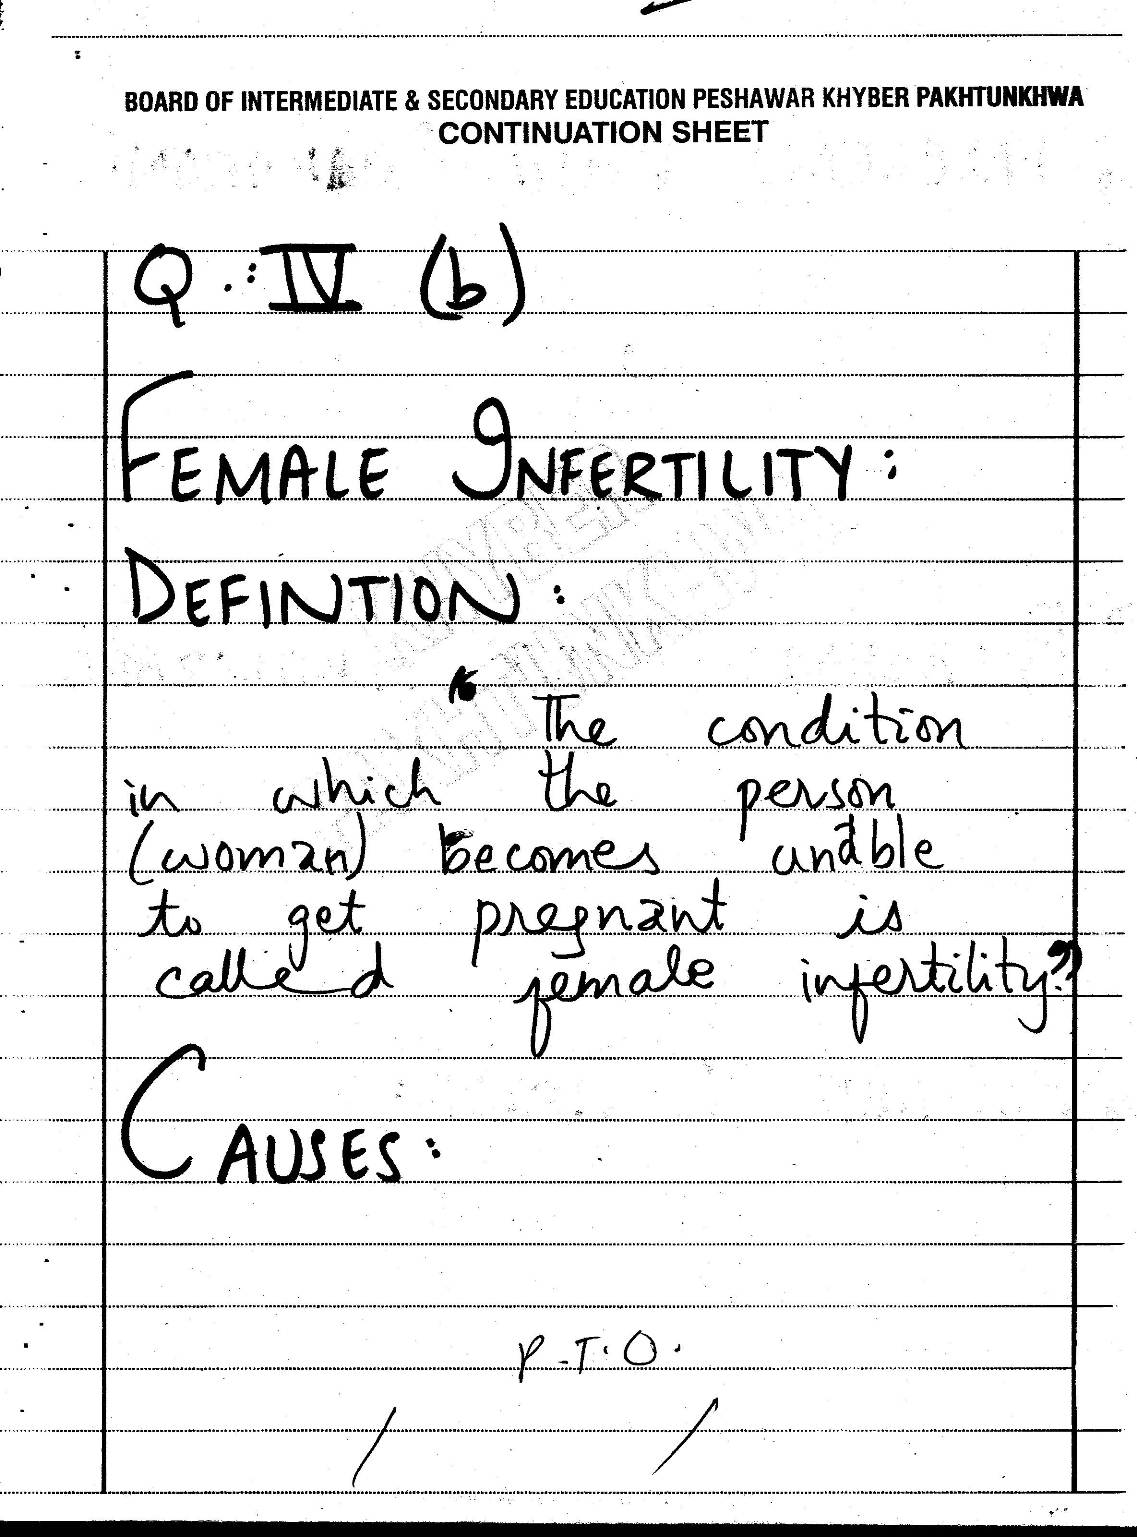 BOARD OF INTERMEDIATE & SECONDARY EDUCATION PESHAWAR KHYBER PAKHTUNKHWA
CONTINUATION SHEET
Q.: IV (b)
FEMALE INFERTILITY:
DEFINTION:
“ The condition
in which the person
(woman) becomes unable
to get pregnant is
called female infertility.”
CAUSES:
P.T.O.